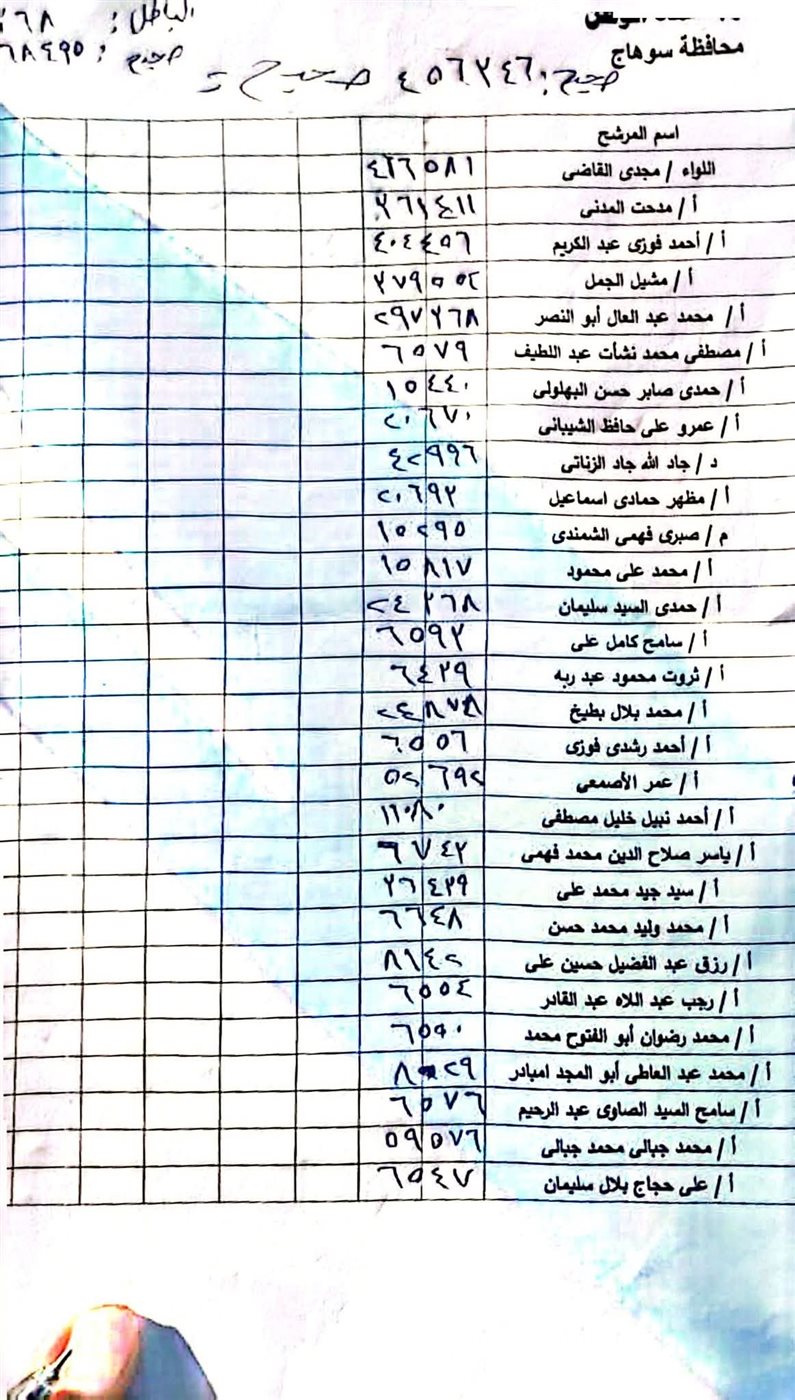 الباطل : ٢٦٨
صحيح : ٦٨٤٩٥
محافظة سوهاج
صحيح : ٤٥٦٣٤٦ صحيح =
اسم المرشح
اللواء / مجدى القاضى ٤٢٦٥٨١
أ / مدحت المدنى ٣٦١٤١١
أ / أحمد فوزى عبد الكريم ٤٠٤٤٥٦
أ / مشيل الجمل ٣٧٩٥٥٢
أ / محمد عبد العال أبو النصر ٢٩٧٣٦٨
أ / مصطفى محمد نشأت عبد اللطيف ٦٥٧٩
أ / حمدى صابر حسن البهلولى ١٥٤٤٠
أ / عمرو على حافظ الشيبانى ٢٠٦٧٠
د / جاد الله جاد الزناتى ٤٢٩٩٦
أ / مظهر حمادى اسماعيل ٢٠٦٩٣
م / صبرى فهمى الشمندى ١٥٢٩٥
أ / محمد على محمود ١٥٨١٧
أ / حمدى السيد سليمان ٢٤٣٦٨
أ / سامح كامل على ٦٥٩٣
أ / ثروت محمود عبد ربه ٦٤٣٩
أ / محمد بلال بطيخ ٢٤٨٧٤٨
أ / أحمد رشدى فوزى ٦٥٥٦
أ / عمر الأصمعى ٥٢٦٩٢
أ / أحمد نبيل خليل مصطفى ١٦٠٨٠
أ / ياسر صلاح الدين محمد فهمى ٦٧٤٣
أ / سيد جيد محمد على ٣٦٤٣٩
أ / محمد وليد محمد حسن ٦٦٤٨
أ / رزق عبد الفضيل حسين على ٨١٤٢
أ / رجب عبد اللاه عبد القادر ٦٥٥٤
أ / محمد رضوان أبو الفتوح محمد ٦٥٩٠
أ / محمد عبد العاطى أبو المجد امبادر
أ / سامح السيد الصاوى عبد الرحيم ٦٥٧٦
أ / محمد جبالى محمد جبالى ٥٩٥٧٦
أ / على حجاج بلال سليمان ٦٥٤٧